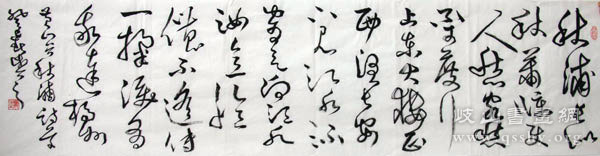 秋浦長似
秋蕭條使
人愁客愁
不可度行
上東大樓正
西望長安
下見江水流
寄言向江水
汝意憶
儂不遙傳
一掬淚為
我達揚州
秋浦詩